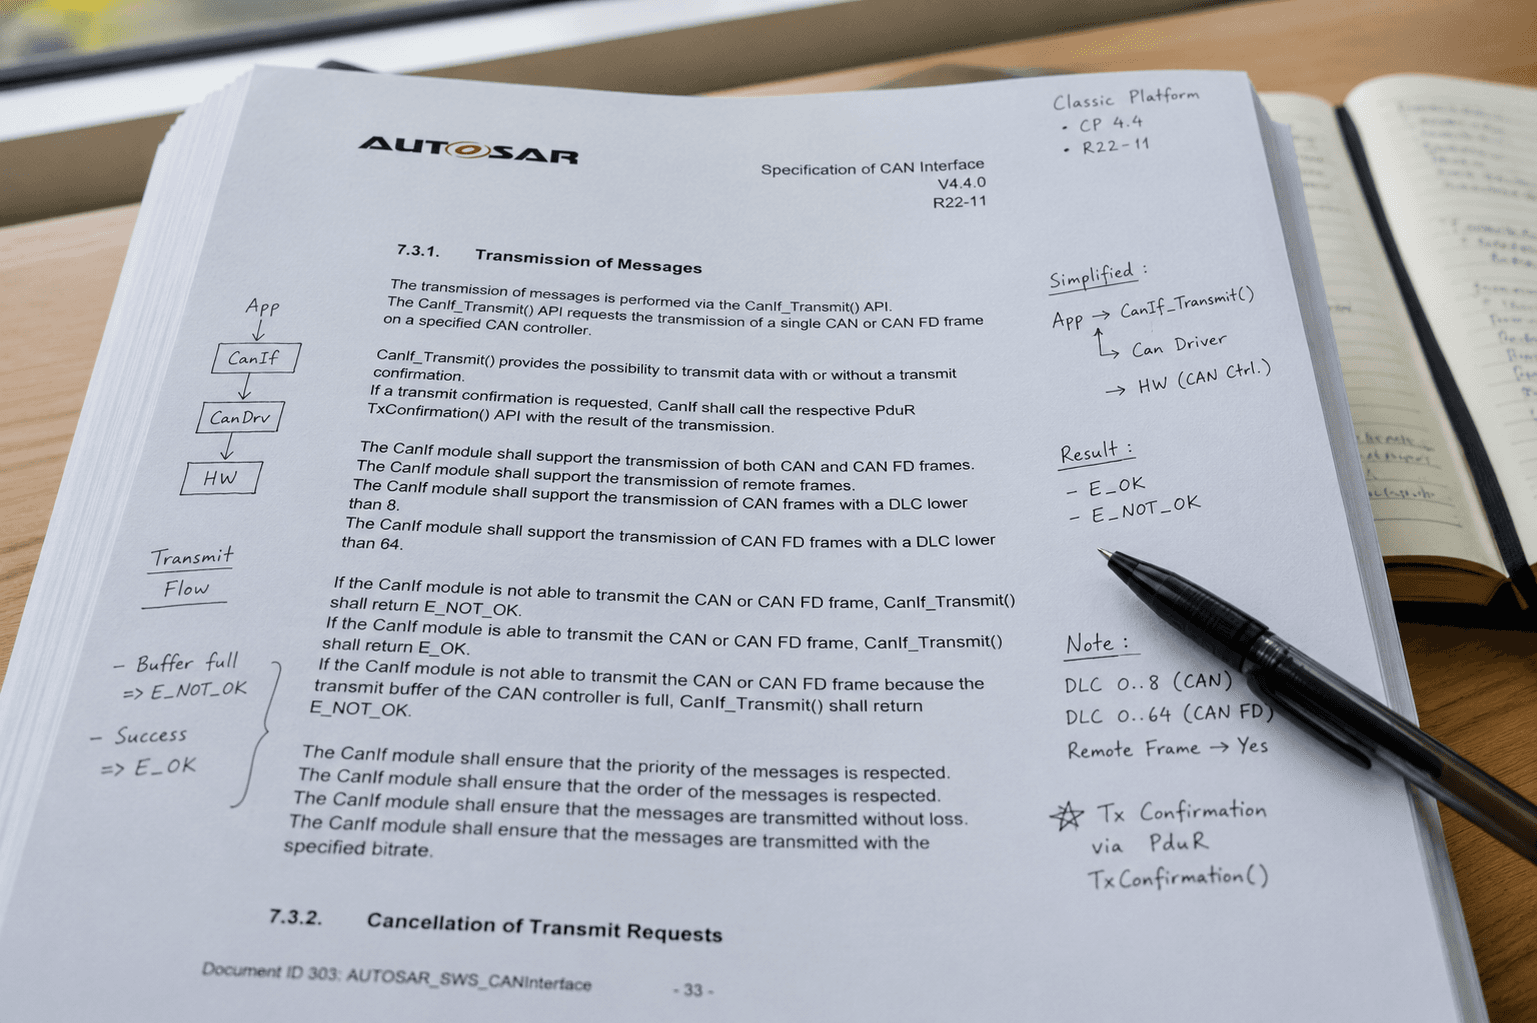 AUTOSAR
Specification of CAN Interface
V4.4.0
R22-11
Classic Platform
• CP 4.4
• R22-11
7.3.1. Transmission of Messages
The transmission of messages is performed via the CanIf_Transmit() API.
The CanIf_Transmit() API requests the transmission of a single CAN or CAN FD frame
on a specified CAN controller.
CanIf_Transmit() provides the possibility to transmit data with or without a transmit
confirmation.
If a transmit confirmation is requested, CanIf shall call the respective PduR
TxConfirmation() API with the result of the transmission.
The CanIf module shall support the transmission of both CAN and CAN FD frames.
The CanIf module shall support the transmission of remote frames.
The CanIf module shall support the transmission of CAN frames with a DLC lower
than 8.
The CanIf module shall support the transmission of CAN FD frames with a DLC lower
than 64.
If the CanIf module is not able to transmit the CAN or CAN FD frame, CanIf_Transmit()
shall return E_NOT_OK.
If the CanIf module is able to transmit the CAN or CAN FD frame, CanIf_Transmit()
shall return E_OK.
If the CanIf module is not able to transmit the CAN or CAN FD frame because the
transmit buffer of the CAN controller is full, CanIf_Transmit() shall return
E_NOT_OK.
The CanIf module shall ensure that the priority of the messages is respected.
The CanIf module shall ensure that the order of the messages is respected.
The CanIf module shall ensure that the messages are transmitted without loss.
The CanIf module shall ensure that the messages are transmitted with the
specified bitrate.
7.3.2. Cancellation of Transmit Requests
Document ID 303: AUTOSAR_SWS_CANInterface
- 33 -
App
CanIf
CanDrv
HW
Transmit
Flow
- Buffer full
=> E_NOT_OK
- Success
=> E_OK
Simplified :
App → CanIf_Transmit()
↳ Can Driver
→ HW (CAN Ctrl.)
Result :
- E_OK
- E_NOT_OK
Note :
DLC 0..8 (CAN)
DLC 0..64 (CAN FD)
Remote Frame → Yes
☆ Tx Confirmation
via PduR
TxConfirmation()